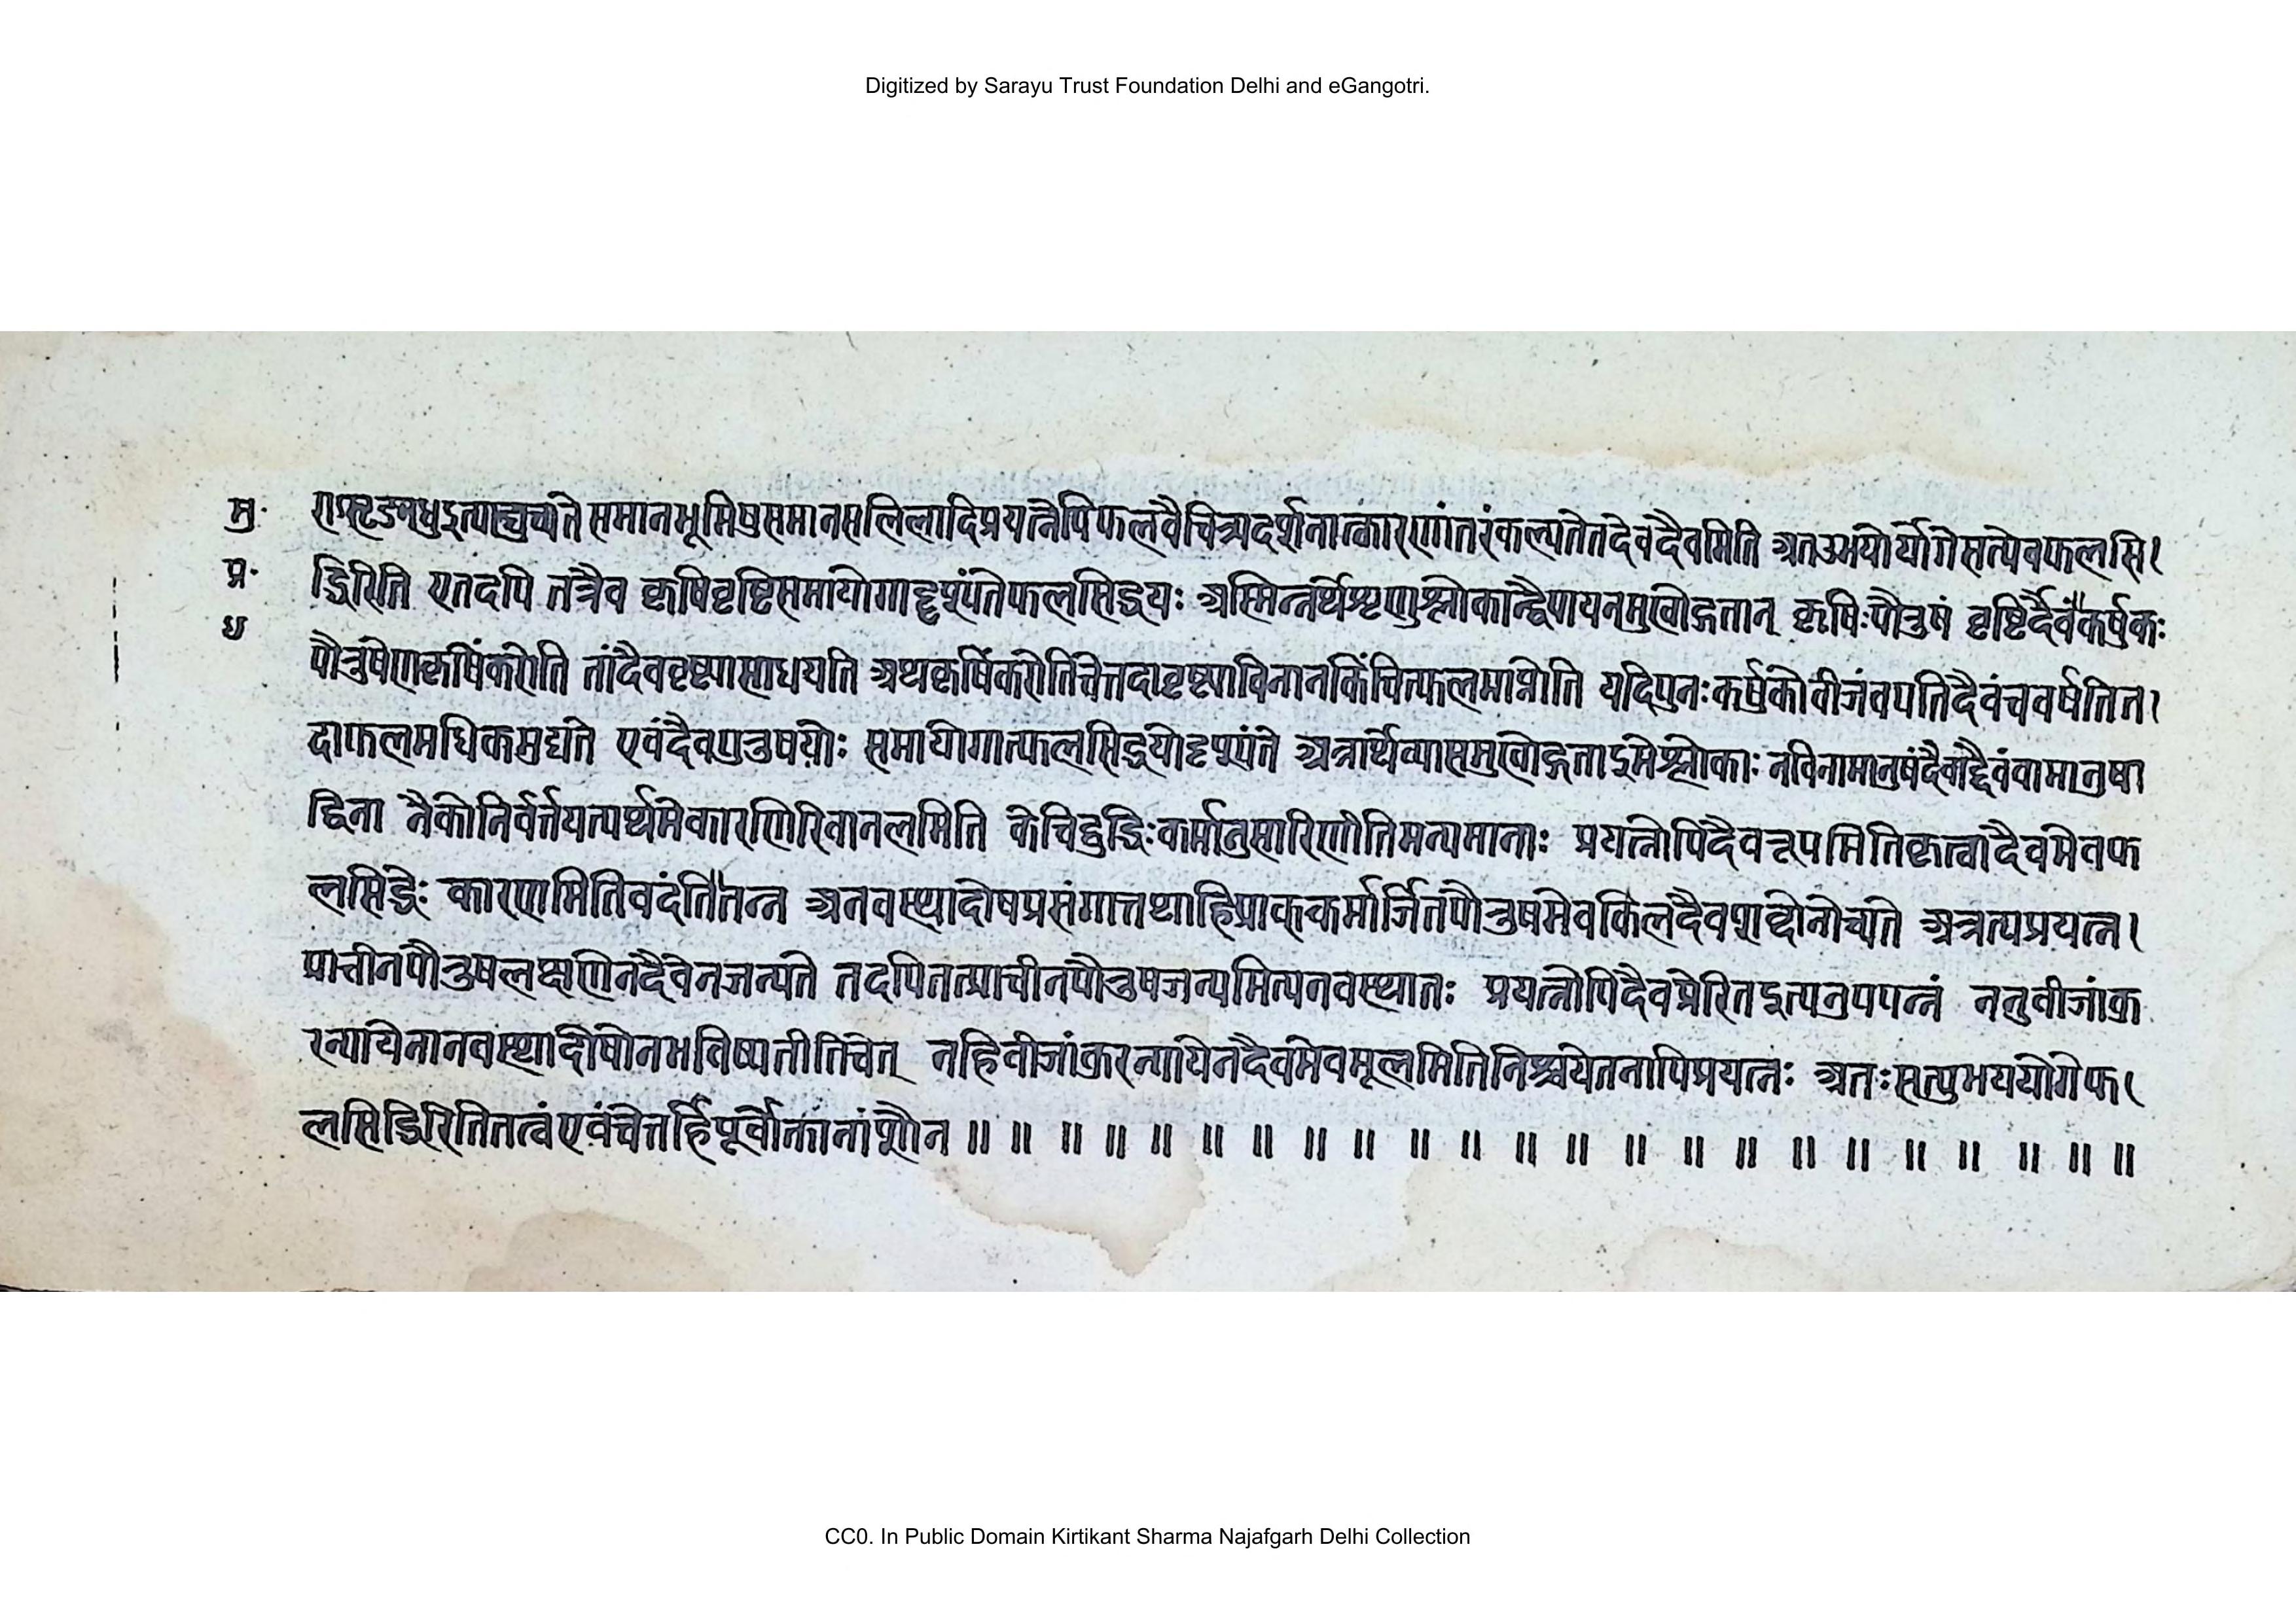 Digitized by Sarayu Trust Foundation Delhi and eGangotri.
मु॰ समानभूमिषुसमानसलिलादिप्रयत्नेपिफलवैचित्र्यदर्शनात्कारणांतरंकल्प्यतेतदेवदैवमिति अतउभयोर्योगेसत्येवफलसि।
प्र॰ द्धिरिति एतदपि तत्रैव कृषिवृष्टिसमायोगाद्दृश्यंतेफलसिद्धयः अस्मिन्नर्थेशृणुश्लोकान्द्वैपायनमुखोद्गतान् कृषिःपौरुषं वृष्टिर्दैवं"कर्षुकः
४ पौरुषेणकृषिंकरोति तांदैववृष्ट्यासाधयति अथकृषिंकरोतिचेत्तदावृष्ट्याविनानकिंचित्फलमाप्नोति यदिपुनःकर्षुकोवीजंवपतिदैवंचवर्षतित।
दाफलमधिकमुद्यते एवंदैवपुरुषयोः समायोगात्फलसिद्धयोदृश्यंते अत्रार्थेव्यासमुखोद्गताइमेश्लोकाः नविनामानुषंदैवंदैवंवामानुषा
द्विना नैकोनिर्वर्त्तयत्यर्थमेकारणिरिवानलमिति केचिद्बुद्धिःकर्मानुसारिणीतिमन्यमानाः प्रयत्नोपिदैवरूपमितिकृत्वादैवमेवफ
लसिद्धेः कारणमितिवदंति"तन्न अनवस्थादोषप्रसंगात्तथाहिप्राक्कर्मार्जितपौरुषमेवकिलदैवशब्देनोच्यते अत्रत्यप्रयत्न।
प्राचीनपौरुषलक्षणेनदैवेनजन्यते तदपितत्प्राचीनपौरुषजन्यमित्यनवस्थातः प्रयत्नोपिदैवप्रेरितइत्यनुपपन्नं ननुवीजांकु
रन्यायेनानवस्थादोषोनभविष्यतीतिचेत् नहिवीजांकुरन्यायेनदैवमेवमूलमितिनिश्चयेतनापिप्रयत्नः अतःसत्युभययोगेफ।
लसिद्धिरितितत्वंएवंचेत्तर्हिपूर्वोक्तानां ॥ ॥ ॥ ॥ ॥ ॥ ॥ ॥ ॥ ॥ ॥ ॥ ॥ ॥ ॥ ॥ ॥ ॥ ॥ ॥ ॥ ॥ ॥
CC0. In Public Domain Kirtikant Sharma Najafgarh Delhi Collection